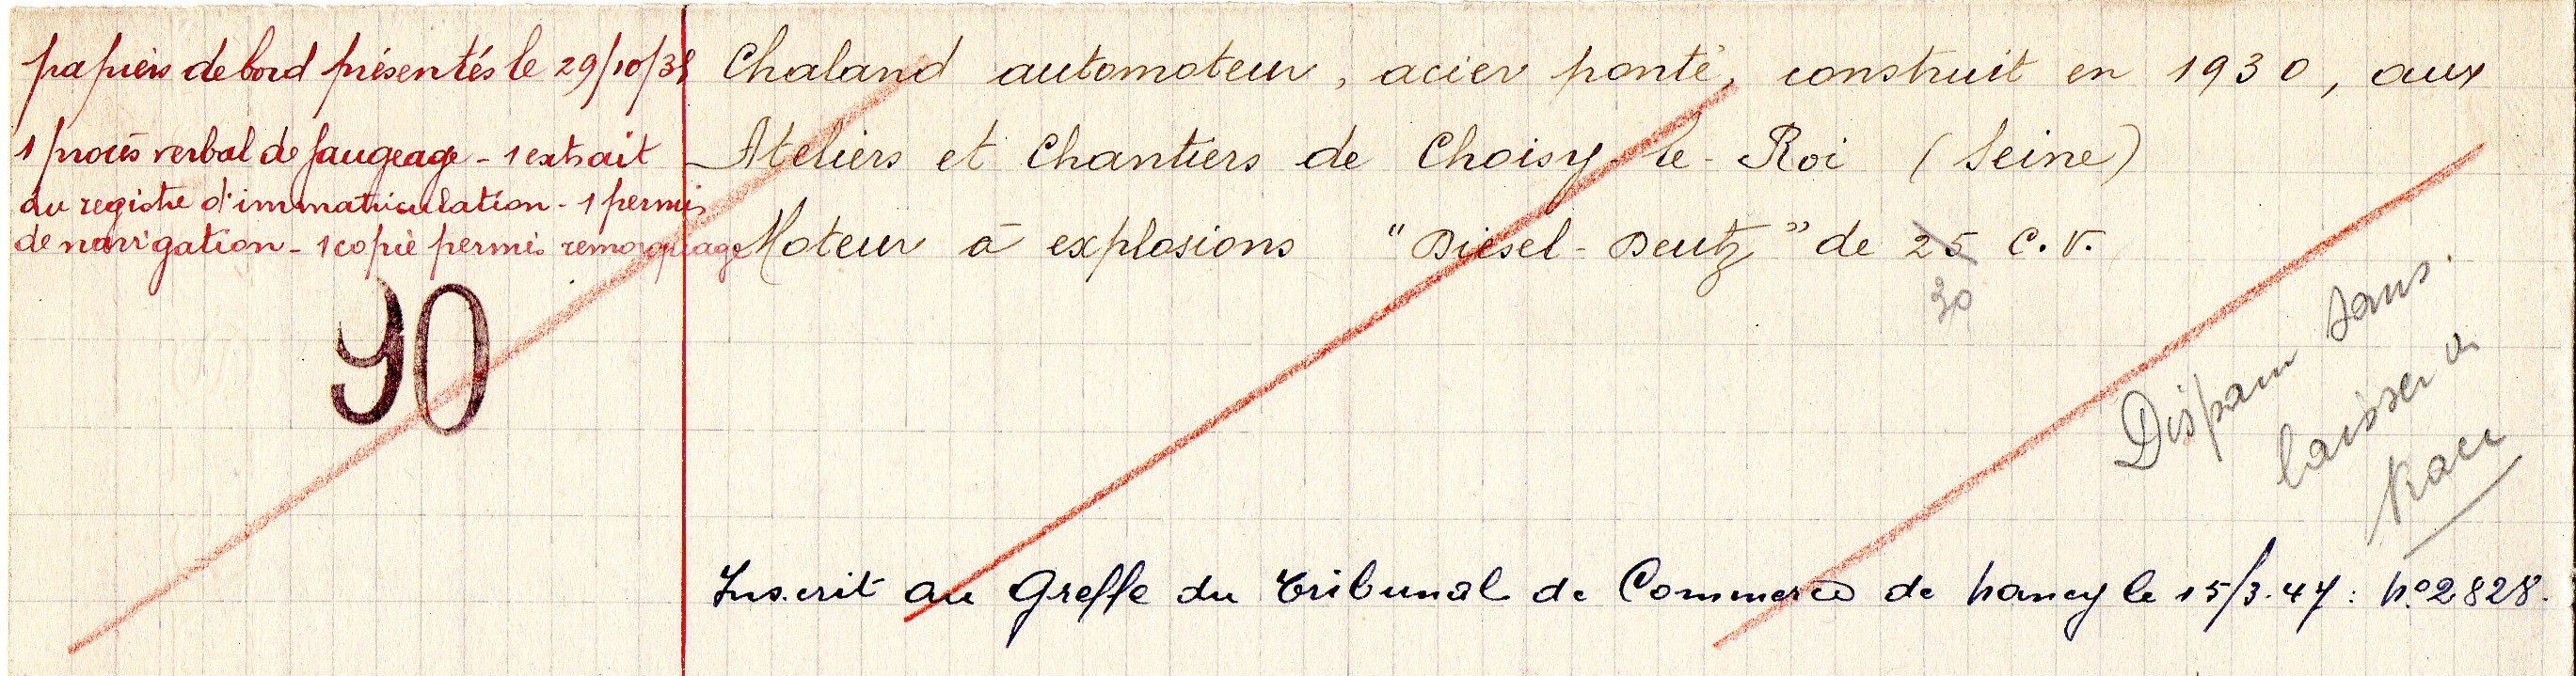 papiers de bord présentés le 29/10/38
1 procès verbal de jaugeage - 1 extrait
du registre d'immatriculation - 1 permis
de navigation - 1 copie permis remorquage
90
Chaland automoteur, acier ponté, construit en 1930, aux
Ateliers et Chantiers de Choisy-le-Roi (Seine)
Moteur à explosions "Diesel-Deutz" de 25 C.V.
30
Disparu sans
laisser de
trace
Inscrit au Greffe du Tribunal de Commerce de Nancy le 15/3.47: N°2828.